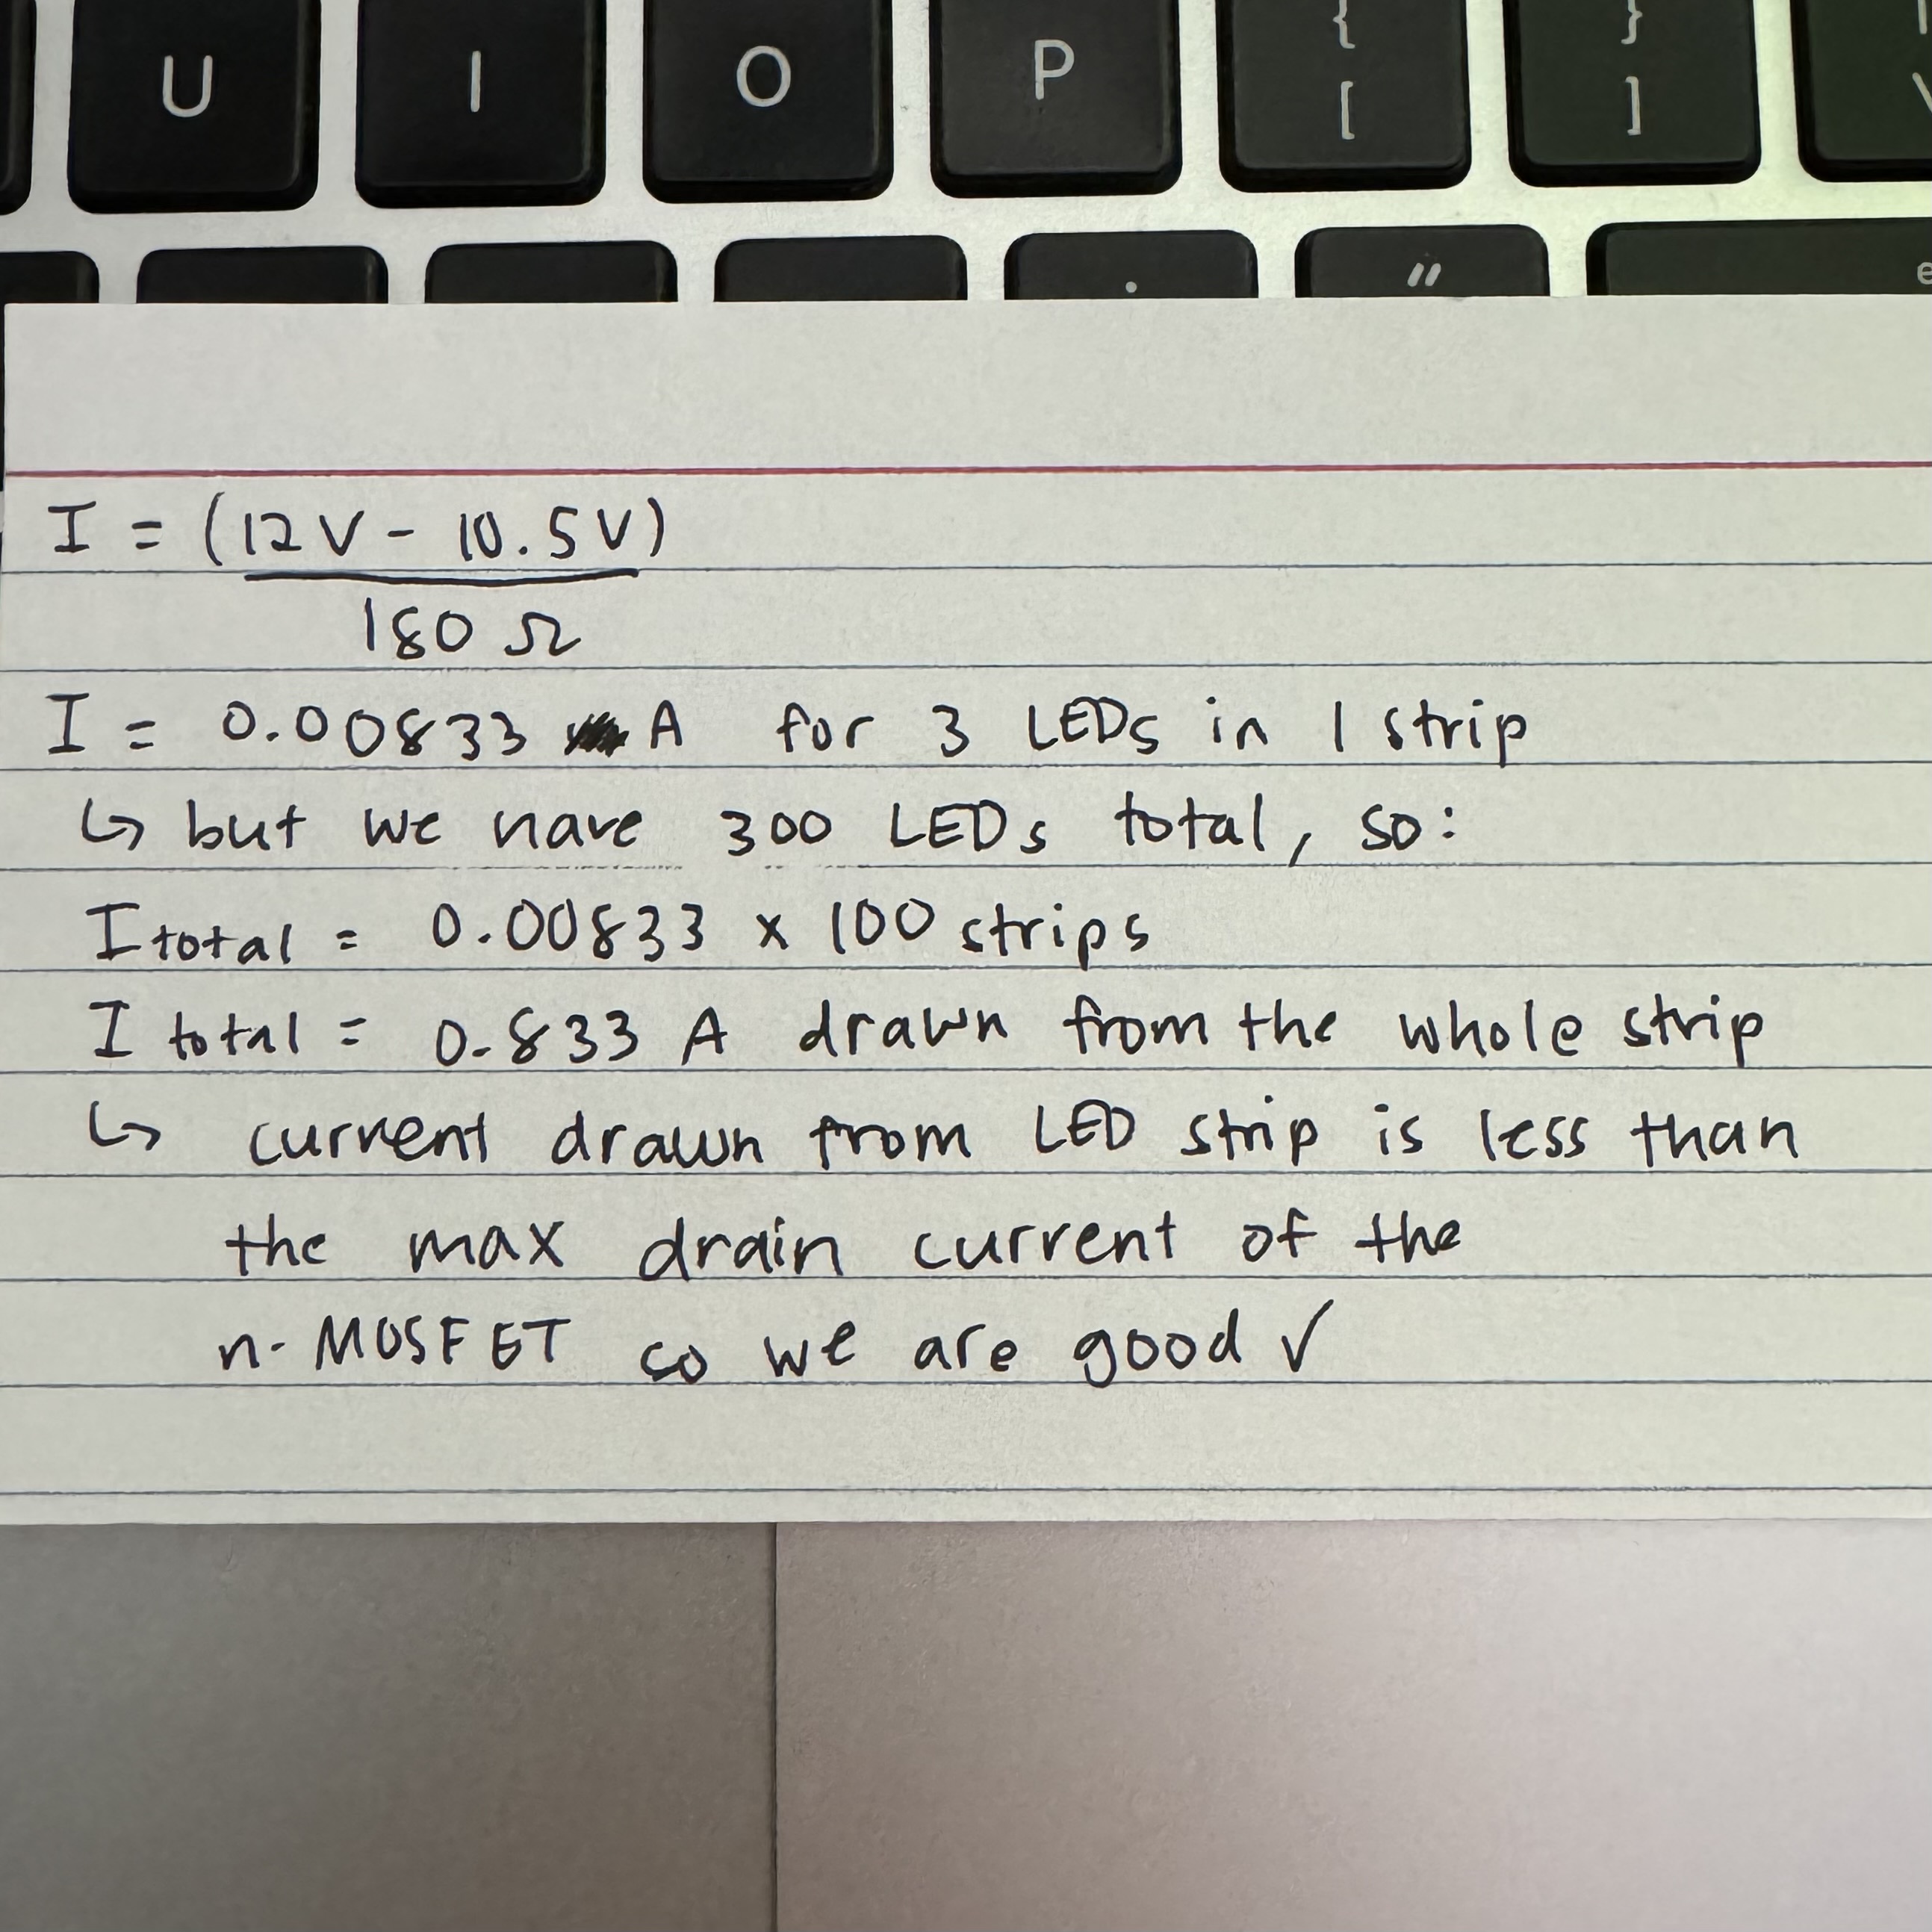 U I O P { [ } ]
"
e
I = (12V - 10.5V)
180 Ω
I = 0.00833 A for 3 LEDs in 1 strip
↳ but we have 300 LEDs total, so:
I total = 0.00833 x 100 strips
I total = 0.833 A drawn from the whole strip
↳ current drawn from LED strip is less than
the max drain current of the
n-MOSFET so we are good ✓